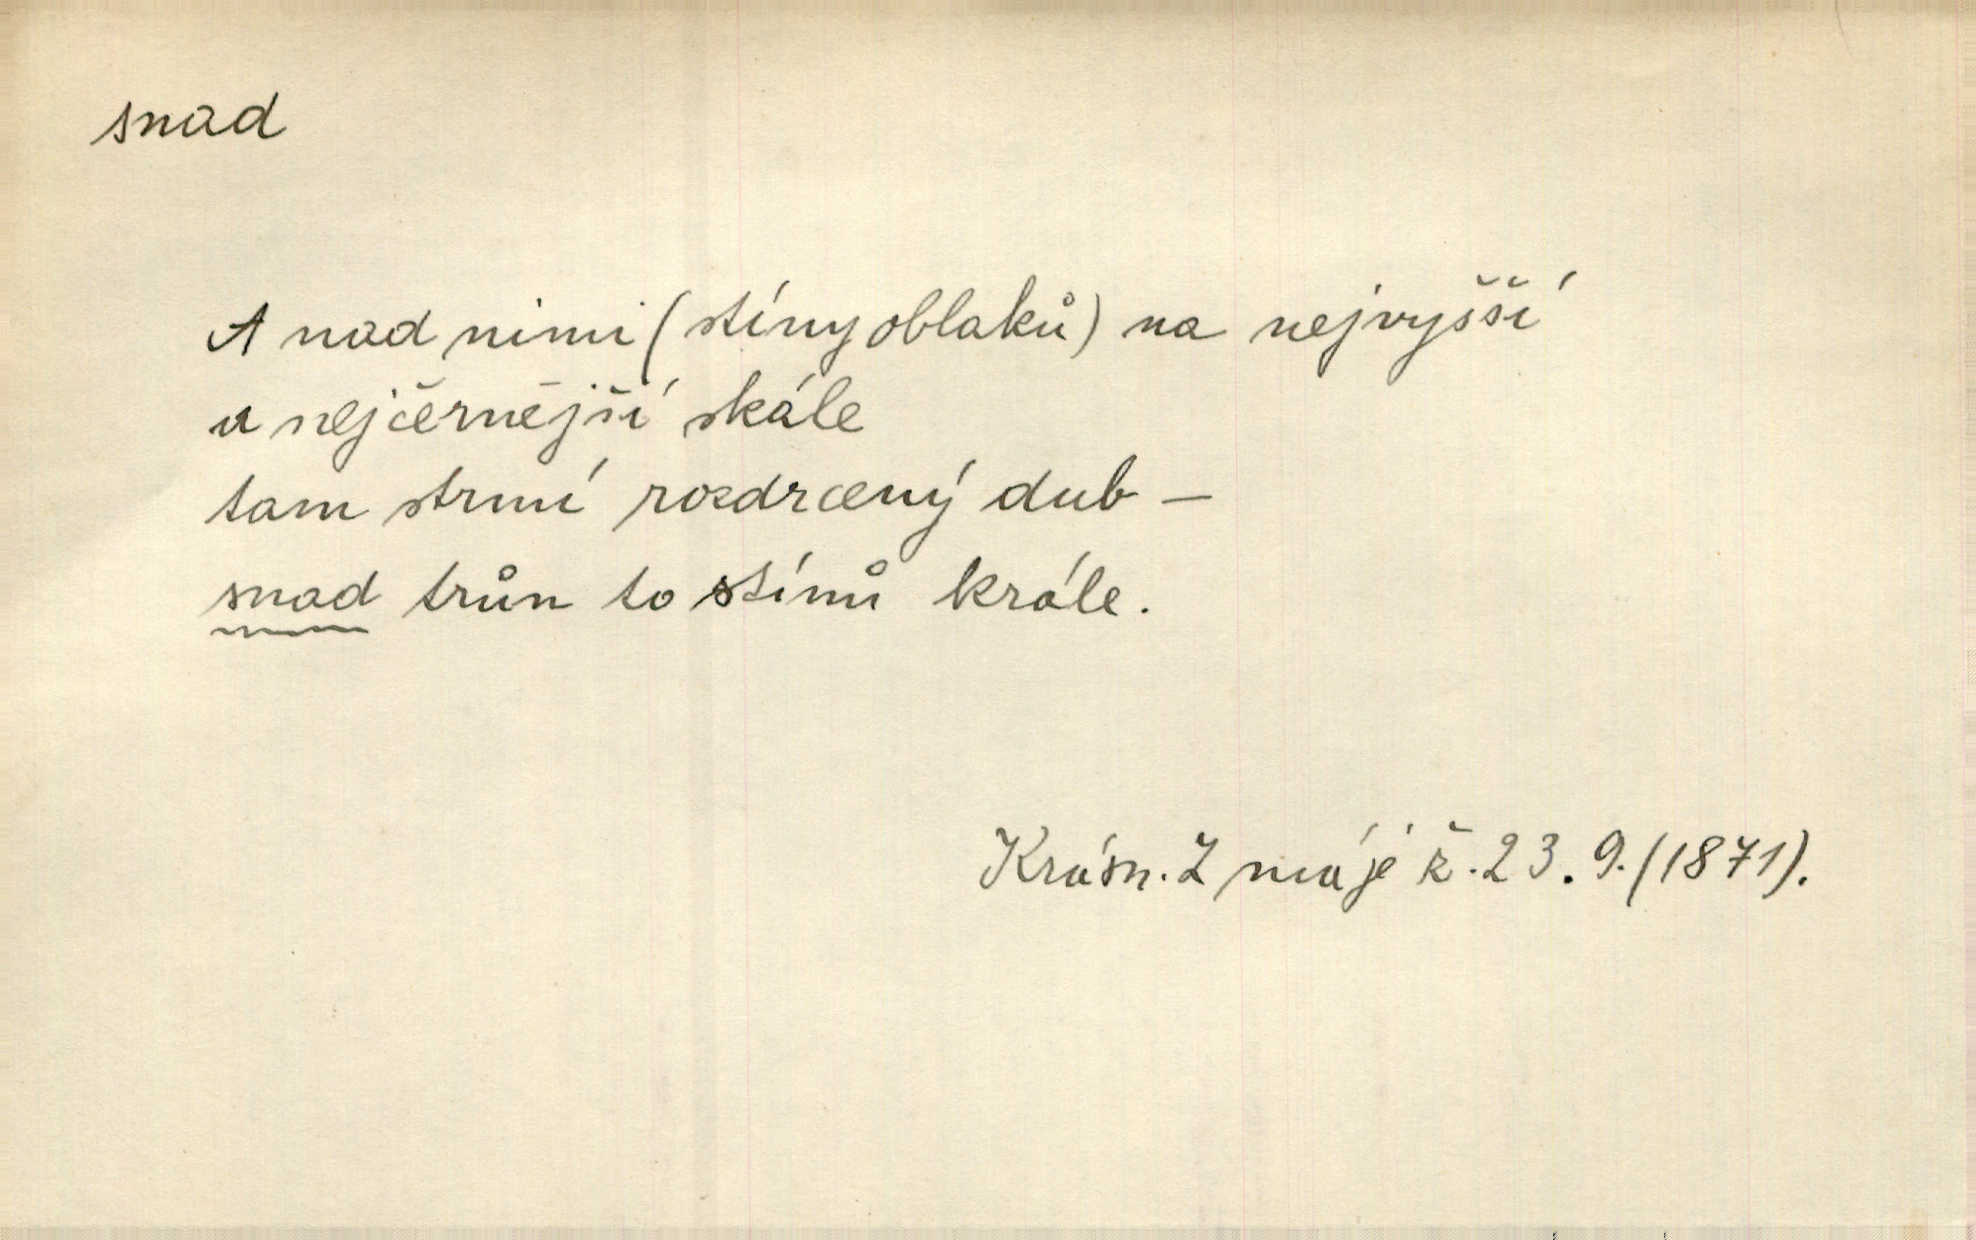 snad
A nad nimi (stíny oblaků) na nejvyšší
a nejčernější skále
tam strmí rozdrcený dub –
snad trůn to stínů krále.
Krásn. Z máje ž. 23. 9. (1871).